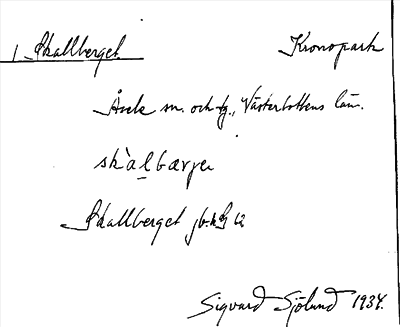 1 Skallberget. Kronopark
Åsele sn. och tg., Västerbottens län.
skàlbærjeꞏ
Skallberget jb.k
Sigvard Sjölund 1934.